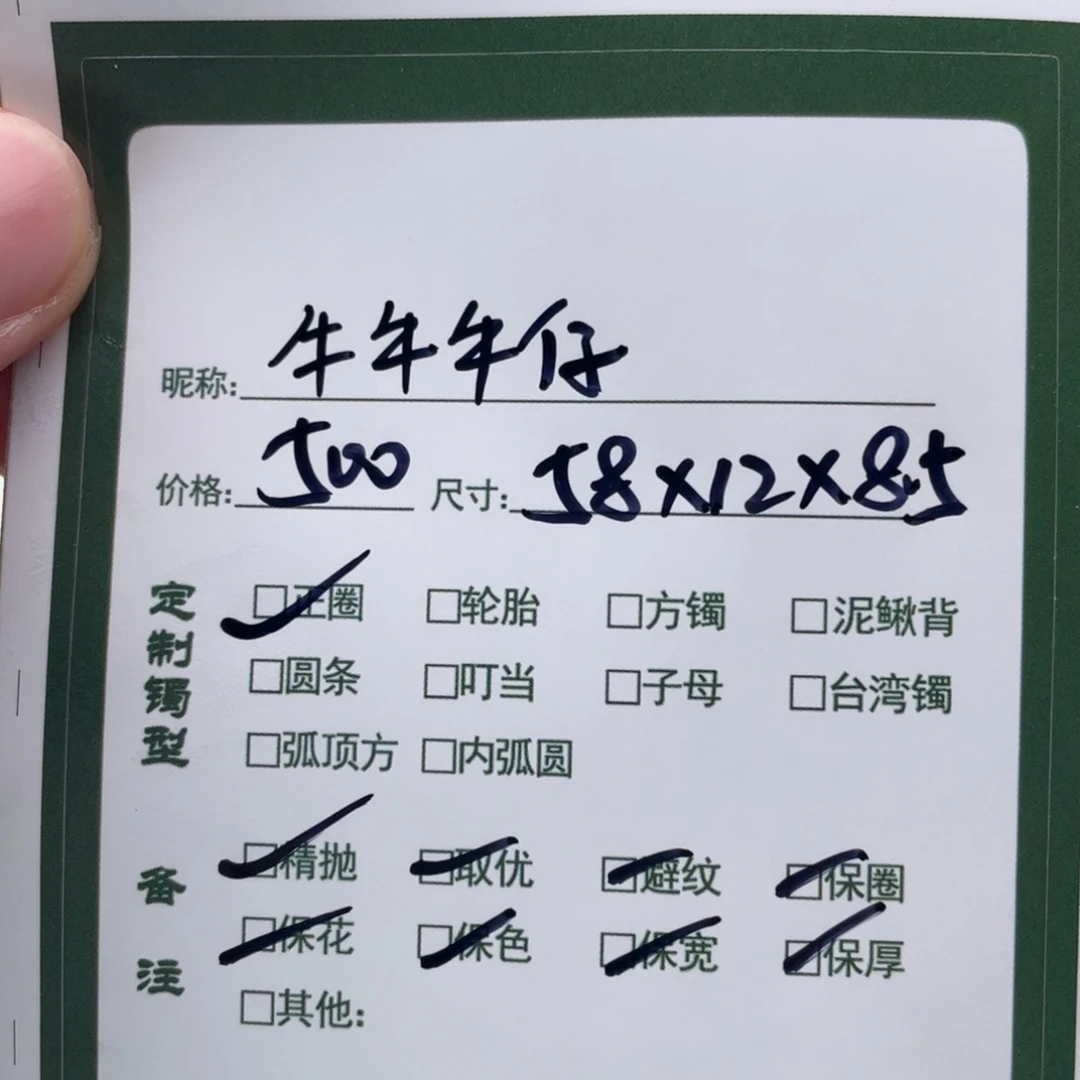 昵称: 牛牛牛仔
价格: 500 尺寸: 58×12×8.5
定制镯型
□正圈 □轮胎 □方镯 □泥鳅背
□圆条 □叮当 □子母 □台湾镯
□弧顶方 □内弧圆
备注
□精抛 □取优 □避纹 □保圈
□保花 □保色 □保宽 □保厚
□其他: